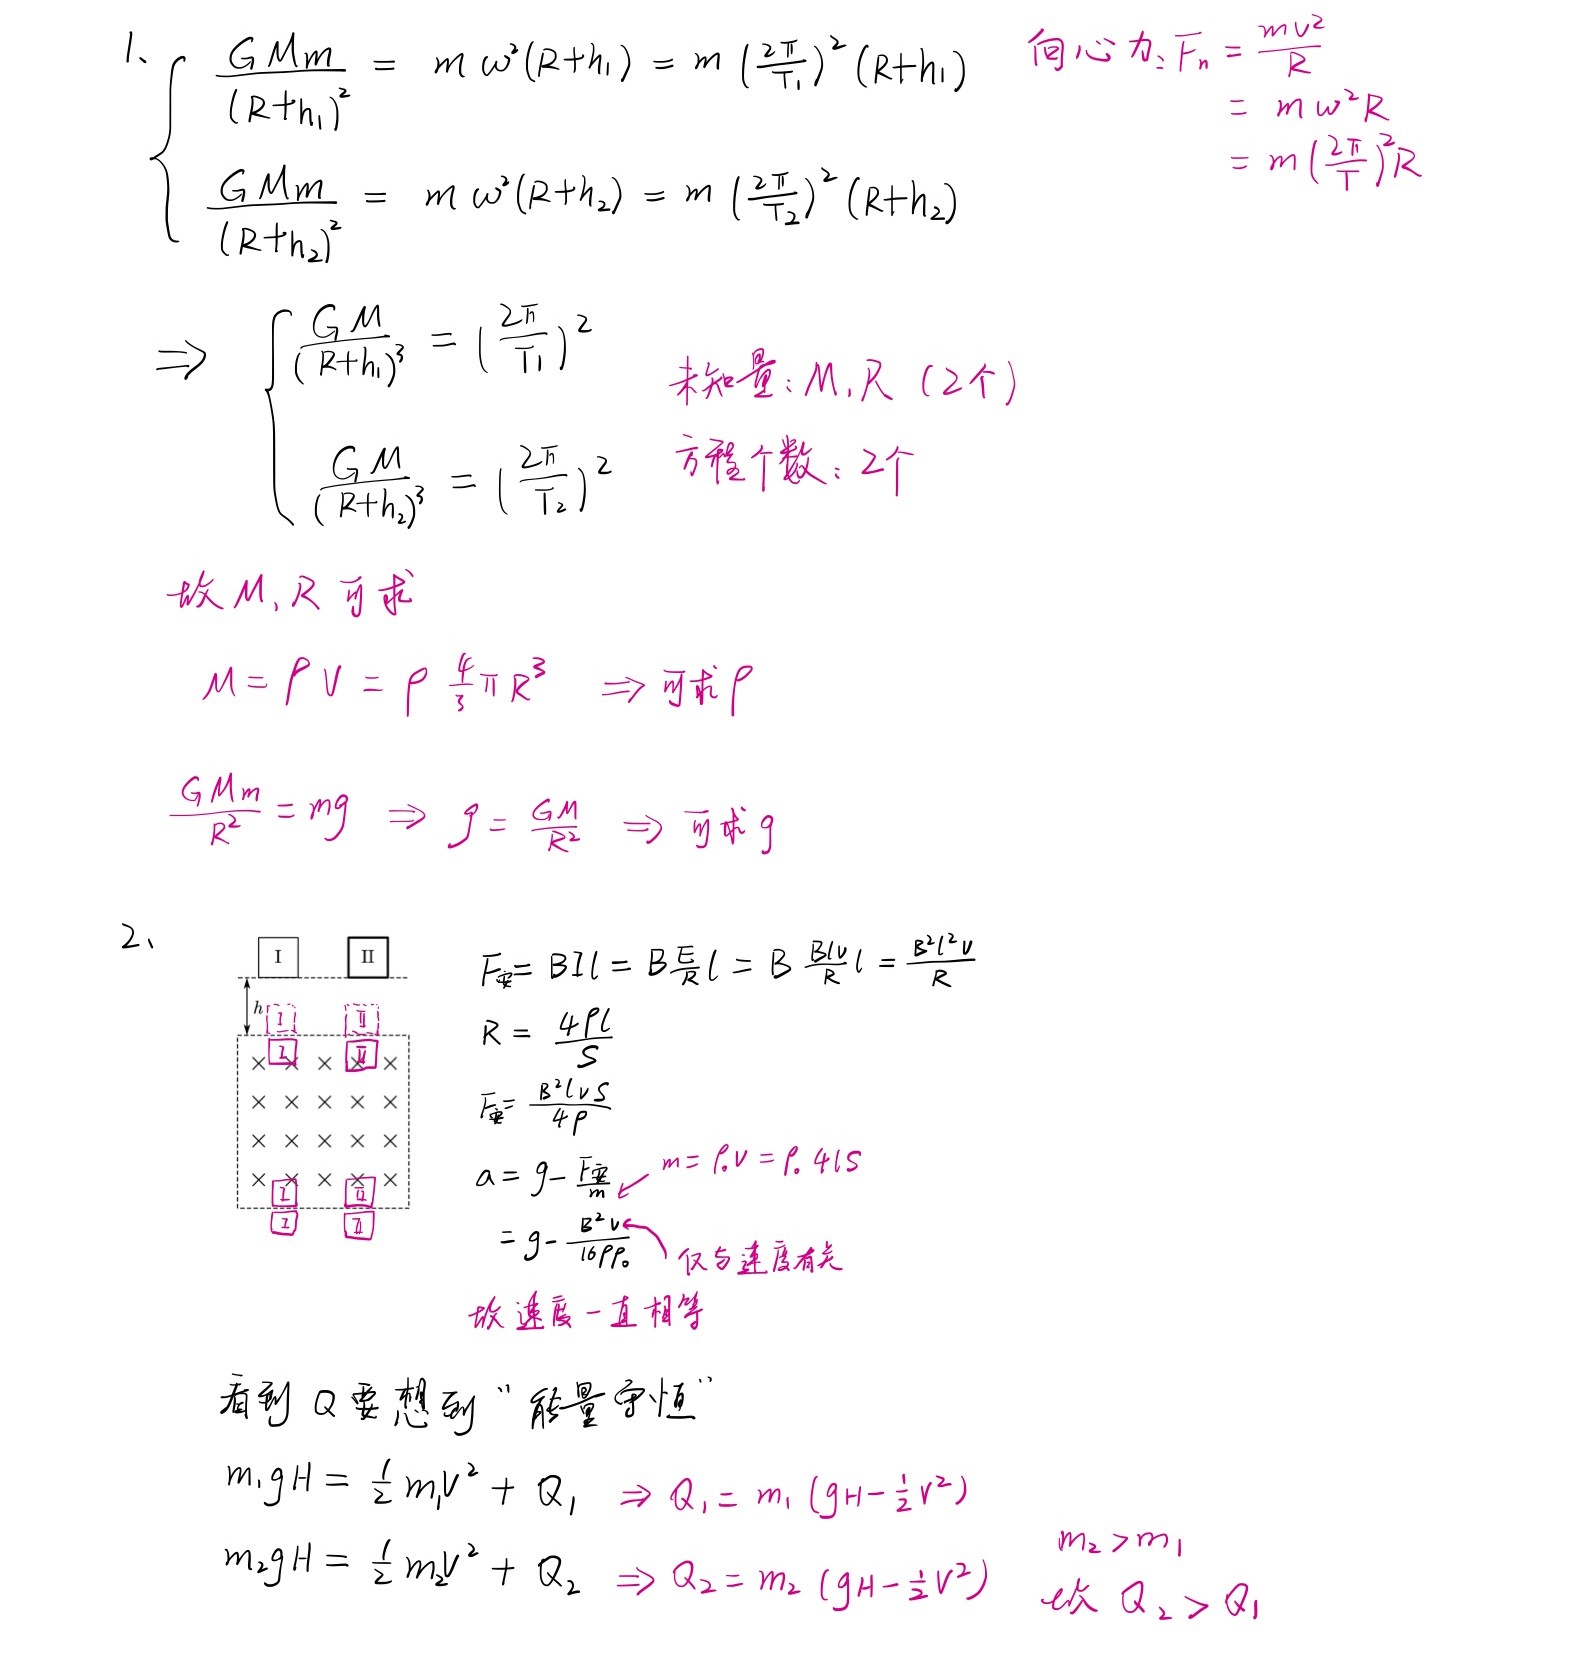 1、 GMm/(R+h₁)² = mω²(R+h₁) = m(2π/T₁)²(R+h₁)
GMm/(R+h₂)² = mω²(R+h₂) = m(2π/T₂)²(R+h₂)
向心力: Fₙ = mv²/R
= mω²R
= m(2π/T)²R
⇒ GM/(R+h₁)³ = (2π/T₁)²
GM/(R+h₂)³ = (2π/T₂)²
未知量: M, R (2个)
方程个数: 2个
故 M, R 可求
M = ρV = ρ 4/3 πR³ ⇒ 可求ρ
GMm/R² = mg ⇒ g = GM/R² ⇒ 可求g
2、
I II
h
I II
I II
× × × × ×
× × × × ×
× × × × ×
× × × × ×
I II
I II
F安 = BIl = B E/R l = B Blv/R l = B²l²v/R
R = 4ρl/S
F安 = B²lvS/4ρ
a = g - F安/m
m = ρ₀V = ρ₀4lS
= g - B²v/16ρρ₀
仅与速度有关
故速度一直相等
看到Q要想到“能量守恒”
m₁gH = 1/2 m₁V² + Q₁ ⇒ Q₁ = m₁(gH - 1/2 V²)
m₂gH = 1/2 m₂V² + Q₂ ⇒ Q₂ = m₂(gH - 1/2 V²)
m₂ > m₁
故 Q₂ > Q₁